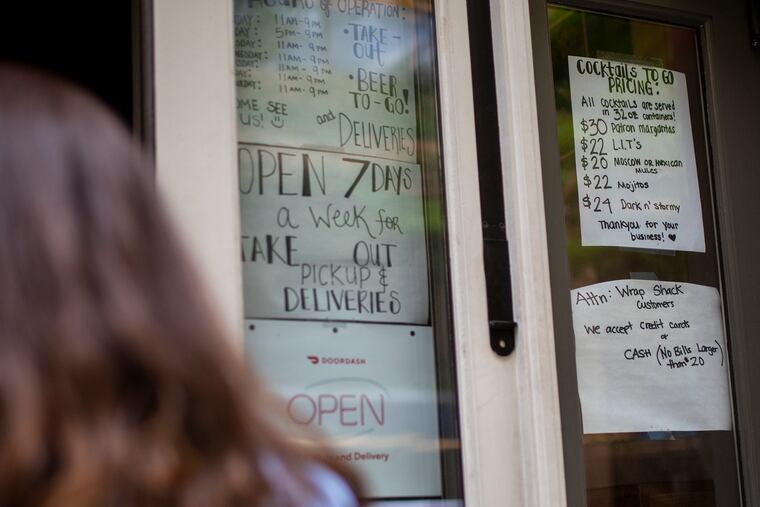 HOURS OF OPERATION:
DAY: 11AM-9PM
DAY: 5PM-9PM
DAY: 11AM-9PM
NESDAY: 11AM-9PM
SDAY: 11AM-9PM
AY: 11AM-9PM
RDAY: 11AM-9PM
OME SEE
US!
• TAKE-
OUT
• BEER
TO-GO!
and
DELIVERIES
OPEN 7 DAYS
a week for
TAKE OUT
PICKUP &
DELIVERIES
DOORDASH
OPEN
and Delivery
COCKTAILS TO GO
PRICING:
All cocktails are served
in 32oz containers!
$30 Patron margaritas
$22 L.I.T's
$20 Moscow or Mexican
Mules
$22 Mojitos
$24 Dark n' stormy
Thankyou for your
business! ♥
Attn: Wrap Shack
Customers
We accept credit cards
or
CASH (No Bills Larger
than $20)